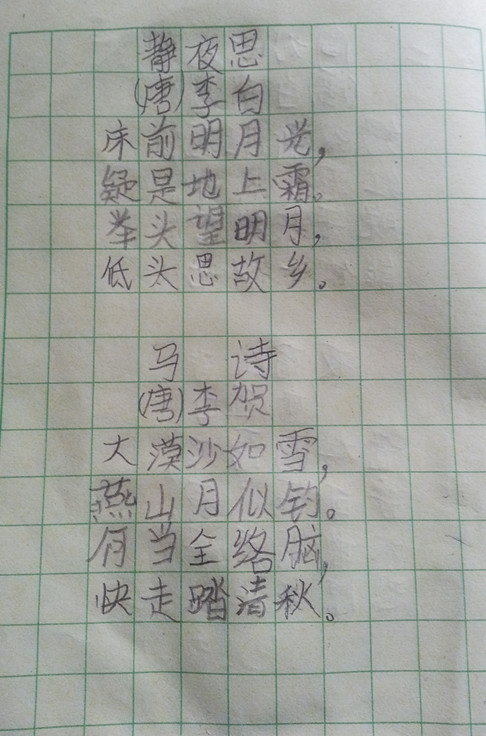 静夜思
(唐)李白
床前明月光,
疑是地上霜。
举头望明月,
低头思故乡。
马 诗
(唐)李贺
大漠沙如雪,
燕山月似钓。
何当全络脑,
快走踏清秋。